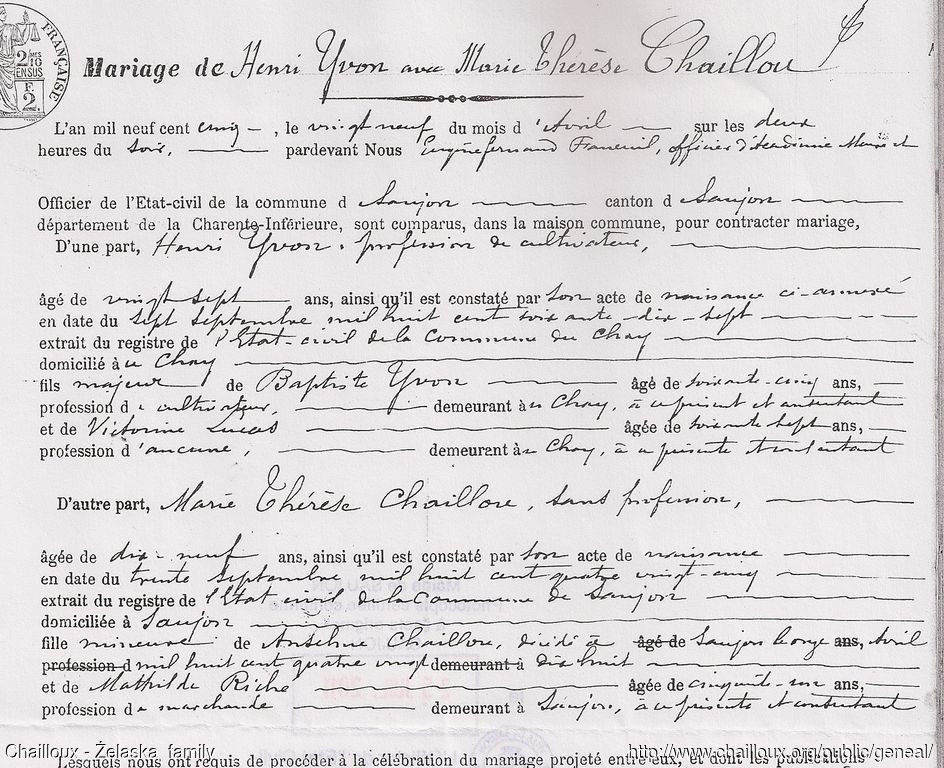 FRANÇAISE
2/10 MES
EN SUS
F
2.
Mariage de Henri Yvon avec Marie Thérèse Chaillou
L'an mil neuf cent cinq, le vingt neuf du mois d'Avril sur les deux
heures du soir, pardevant Nous Eugène Fernand Faneuil, officier d'académie Maire et
Officier de l'Etat-civil de la commune d Saujon canton d Saujon
département de la Charente-Inférieure, sont comparus, dans la maison commune, pour contracter mariage,
D'une part, Henri Yvon, profession de cultivateur,
âgé de vingt sept ans, ainsi qu'il est constaté par son acte de naissance ci-annexé
en date du sept septembre mil huit cent soixante-dix-sept
extrait du registre de l'Etat-civil de la Commune du Chay
domicilié à u Chay
fils majeur de Baptiste Yvon âgé de soixante-cinq ans,
profession de cultivateur, demeurant à u Chay, à ce présent et consentant
et de Victorine Lucas âgée de soixante sept ans,
profession d'aucune, demeurant à u Chay, à ce présente et consentant
D'autre part, Marie Thérèse Chaillou, sans profession,
âgée de dix-neuf ans, ainsi qu'il est constaté par son acte de naissance
en date du trente septembre mil huit cent quatre vingt-cinq
extrait du registre de l'Etat civil de la Commune de Saujon
domiciliée à Saujon
fille mineure de Anselme Chaillou, décédé à âgé de Saujon le onze ans, Avril
profession d mil huit cent quatre vingt demeurant à dix huit
et de Mathilde Riché âgée de cinquante-un ans,
profession de marchande demeurant à Saujon, à ce présente et consentant
Lesquels nous ont requis de procéder à la célébration du mariage projeté entre eux, et dont les publications
Chailloux - Želaska family
http://www.chailloux.org/public/geneal/